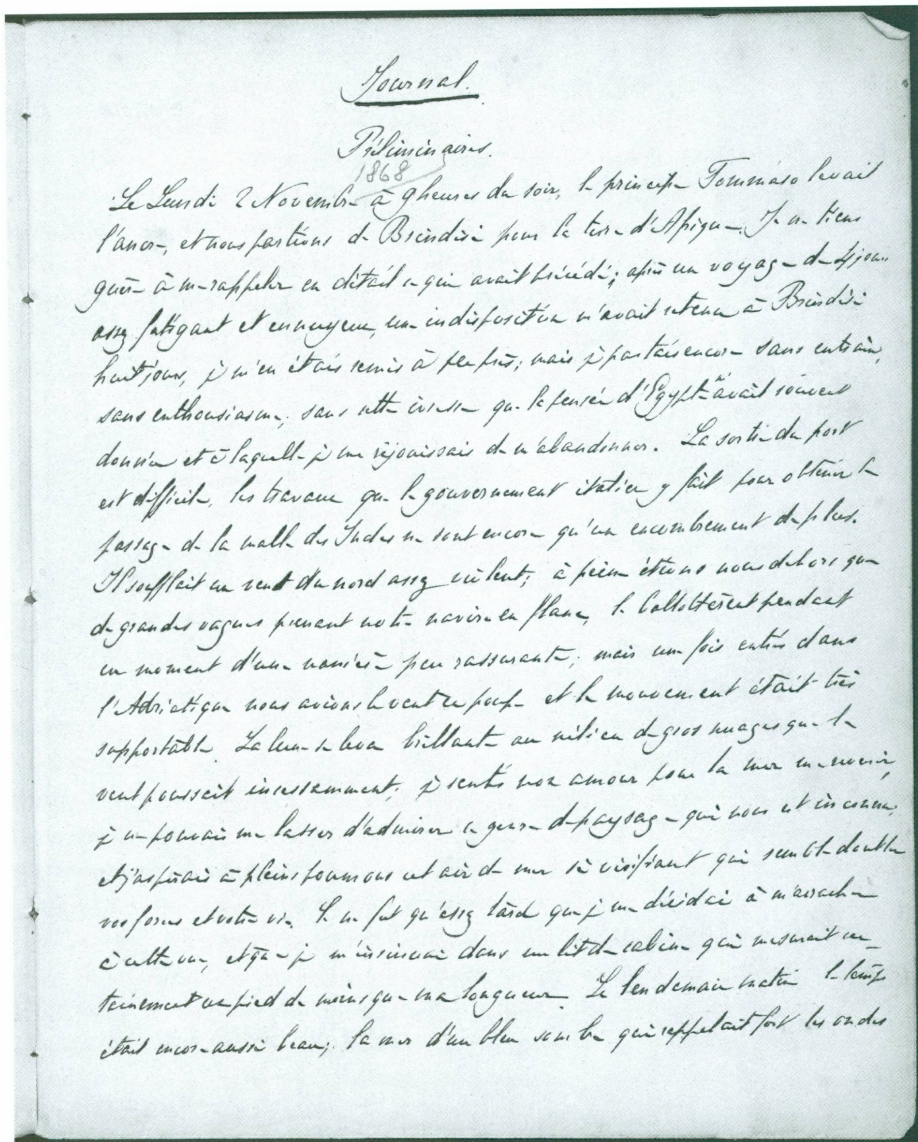 Journal.
Préliminaires.
1868
Le Lundi 2 Novembre à 9 heures du soir, le principe Tommaso levait
l'ancre, et nous partions de Brindisi pour la terre d'Afrique. Je ne tiens
guère à me rappeler en détail ce qui avait précédé; après un voyage de 4 jours
assez fatigant et ennuyeux, une indisposition m'avait retenu à Brindisi
huit jours, je m'en étais remis à peu près; mais je partais encore sans entrain,
sans enthousiasme, sans cette ivresse que la pensée d'Egypte m'avait souvent
donnée et à laquelle je me réjouissais de m'abandonner. La sortie du port
est difficile, les travaux que le gouvernement italien y fait pour obtenir le
passage de la malle des Indes ne sont encore qu'un encombrement de plus.
Il soufflait un vent du nord assez violent; à peine étions nous dehors que
de grandes vagues prenant notre navire en flanc, le ballottèrent pendant
un moment d'une manière peu rassurante; mais une fois entrés dans
l'Adriatique nous avions le vent en poupe et le mouvement était très
supportable. La lune se leva brillante au milieu de gros nuages que le
vent poussait incessamment; je sentis mon amour pour la mer me revenir,
je ne pouvais me lasser d'admirer ce genre de paysage qui nous est inconnu,
et j'aspirais à pleins poumons cet air de mer si vivifiant qui semble doubler
vos forces et votre vie. Ce ne fut qu'assez tard que je me décidai à m'arracher
à cette vue, et que je m'insinuai dans un lit de cabine qui mesurait cer-
tainement un pied de moins que ma longueur. Le lendemain matin le temps
était encore aussi beau; la mer d'un bleu sombre qui rappelait fort les ondes